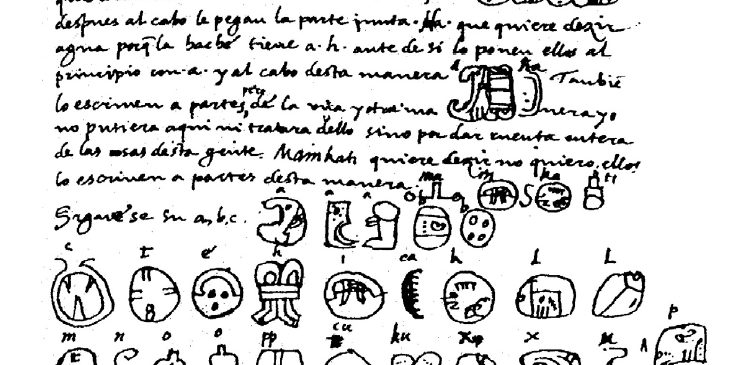 despues al cabo le pegan la parte junta. Ha. que quiere dezir
agua porq̃ la hache tiene a. h. ante de si lo ponen ellos al
principio con a. y al cabo desta manera A ha Tambiẽ
lo escriven a partes, pero de la una y otra ma nera yo
no pusiera aqui ni tratara dello sino por dar cuenta entera
de las cosas desta gente. Mainkati quiere dezir no quiero, ellos
lo escriven a partes desta manera. ma i n ka ti
Siguese su a, b, c. a a a b b
c t e h i ca k l l
m n o o pp cu ku x x u p